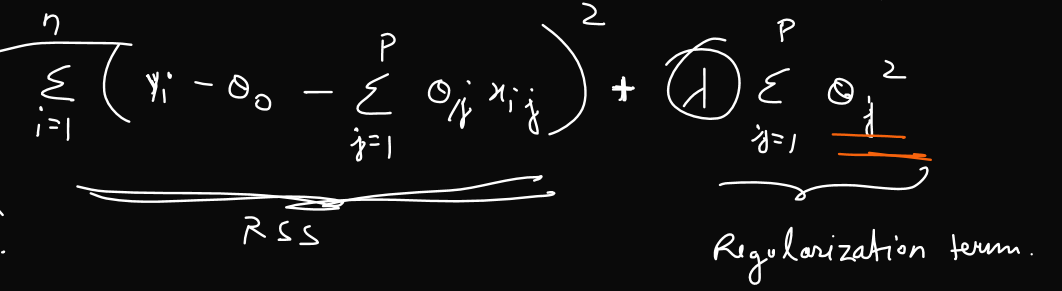 n ∑ i=1 ( yi - θ0 - p ∑ j=1 θj xij )² + λ p ∑ j=1 θj²
RSS
Regularization term.